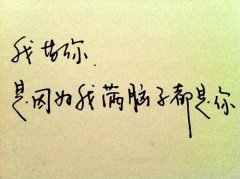 我你,
是因为我满脑子都是你